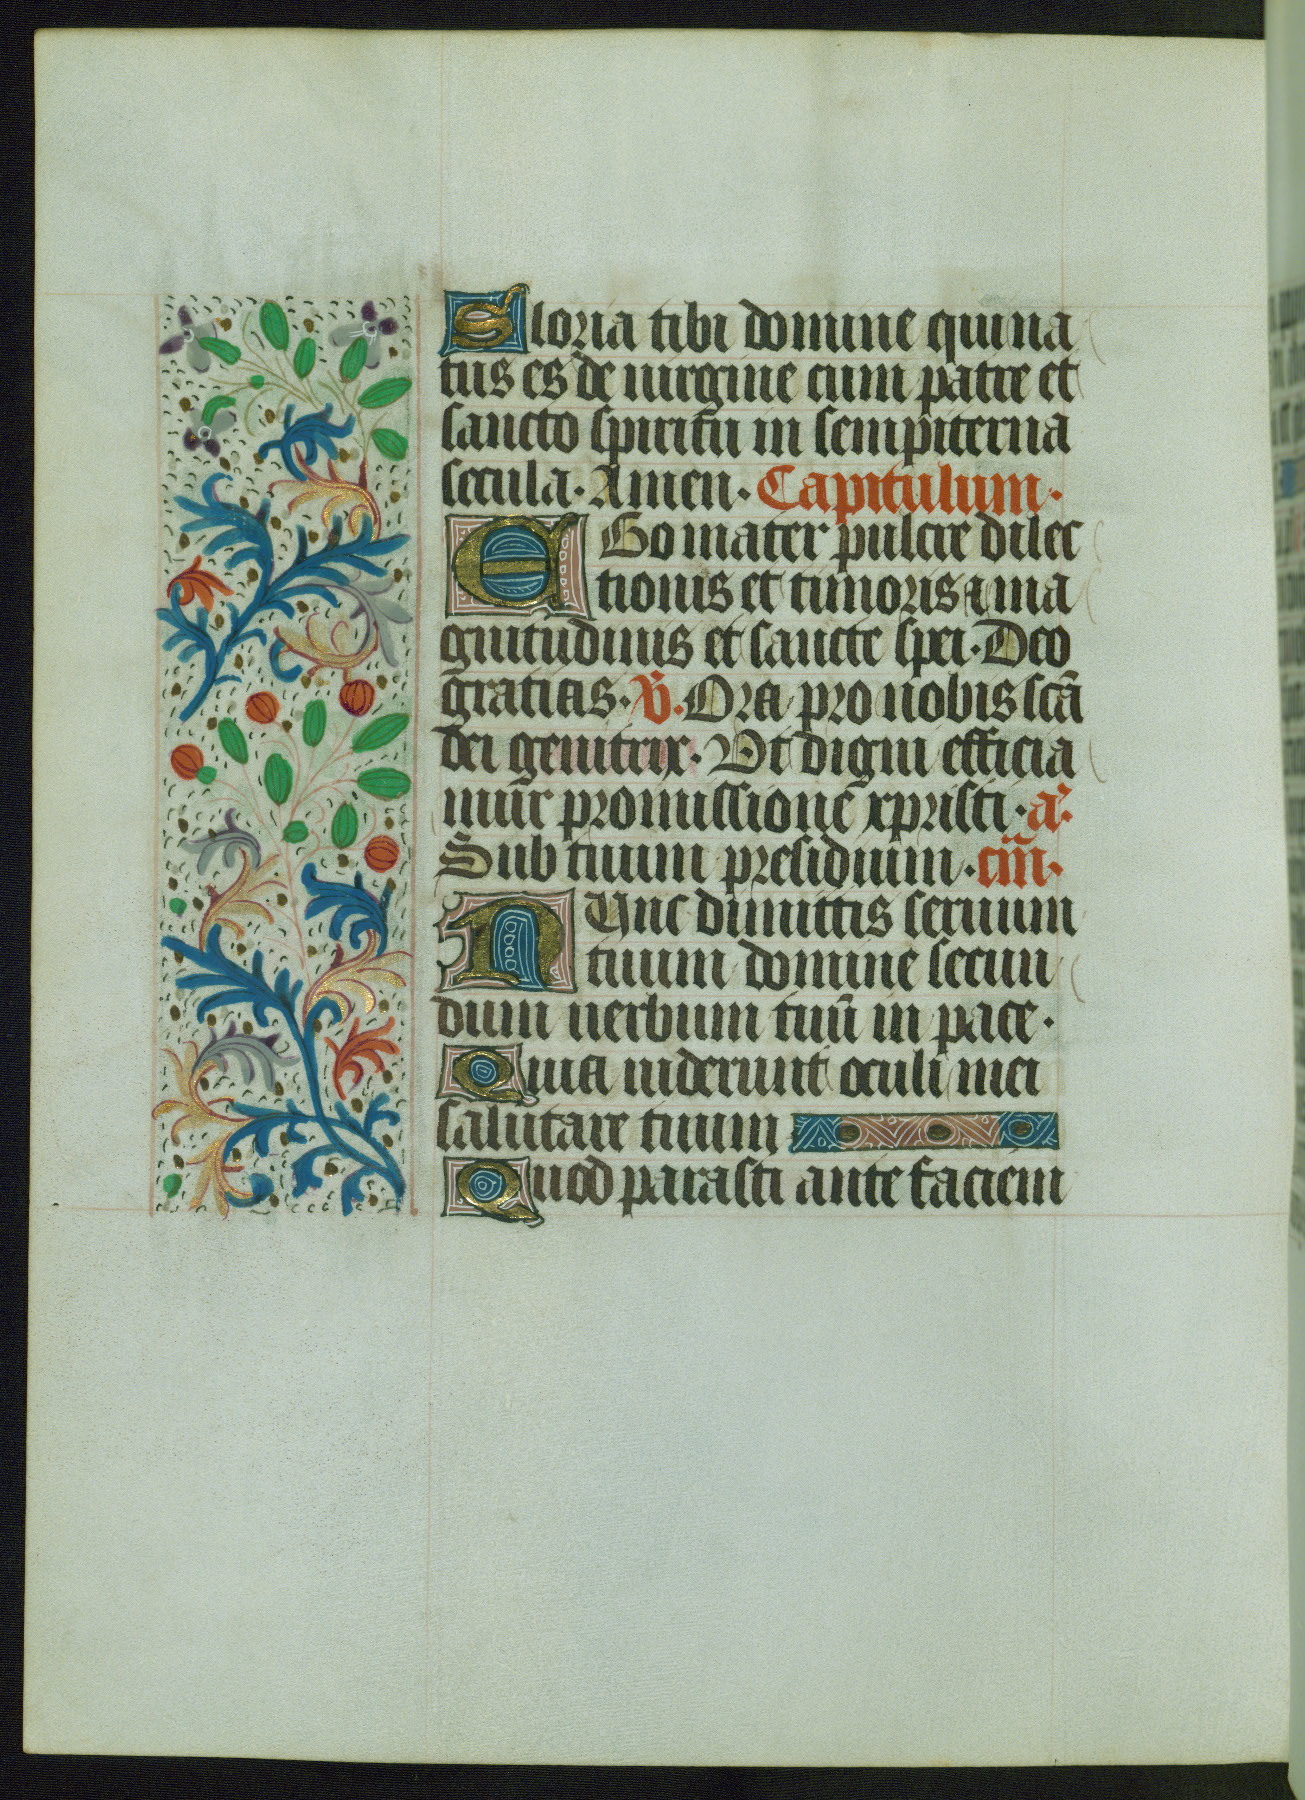 Sloria tibi domine qui na
tus es de uirgine cum patre et
sancto spiritu in sempiterna
secula. Amen. Capitulum.
EGo mater pulcre dilec
tionis et timoris ⁊ ma
gnitudinis et sancte spei. Deo
gratias. V̄. Ora pro nobis scā
dei genitrix. Vt digni efficia
mur promissione xpristi. a.
Sub tuum presidium. cm̄.
NUnc dimittis seruum
tuum domine secun
dum uerbum tuū in pace.
Quia uiderunt oculi mei
salutare tuum
Quod parasti ante faciem